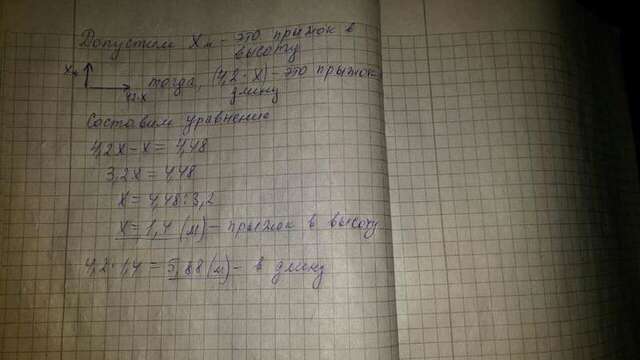 Допустим Xм - это прыжок в
высоту
Xм
4,2·X
тогда, (4,2·X) - это прыжок
длину
Составим уравнение
4,2X-X= 4,48
3,2X= 4,48
X= 4,48:3,2
X= 1,4 (м) - прыжок в высоту
4,2·1,4 = 5,88 (м) - в длину